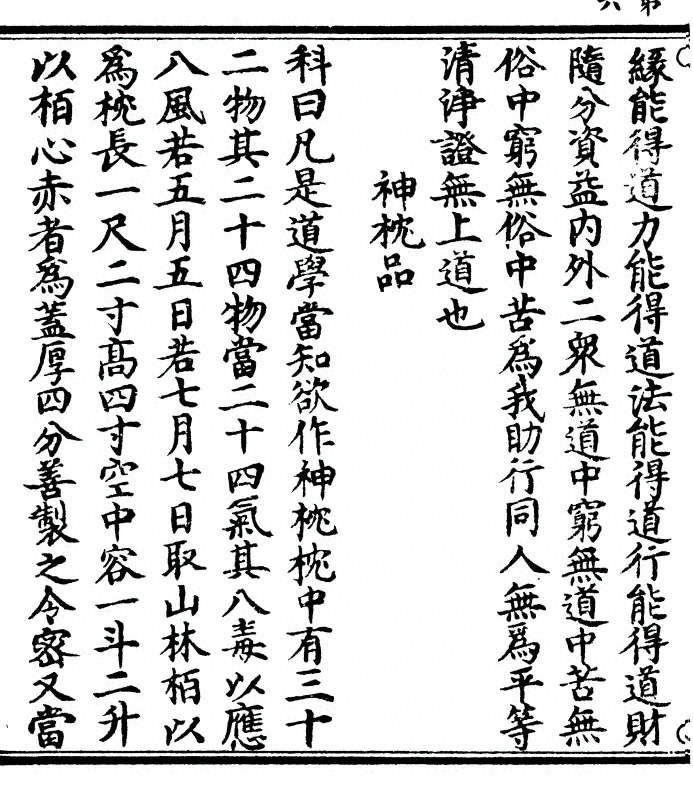 緣能得道力能得道法能得道行能得道財
隨分資益内外二衆無道中窮無道中苦無
俗中窮無俗中苦爲我助行同人無爲平等
清淨證無上道也
神枕品
科曰凡是道學當知欲作神枕枕中有三十
二物其二十四物當二十四氣其八毒以應
八風若五月五日若七月七日取山林栢以
爲枕長一尺二寸髙四寸空中容一斗二升
以栢心赤者爲蓋厚四分善製之令密又當